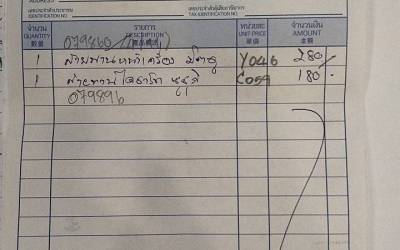 ADDRESS
เลขประจำตัวผู้เสียภาษี
IDENTIFICATION NO.
เลขประจำตัวผู้เสียภาษีอากร
TAX IDENTIFICATION NO.
จำนวน รายการ หน่วยละ จำนวนเงิน
QUANTITY DESCRIPTION UNIT PRICE AMOUNT
數量 單價 金額
079860
1 สายพานหน้าเครื่อง Y046 280/
1 สายพาน C059 180.-
079896